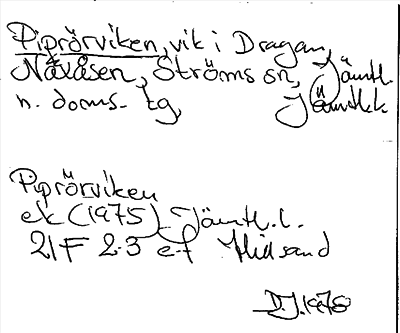 Piprörviken, vik i Dragan,
Näxåsen, Ströms sn, Jämtl.
n. doms. tg, Jämtl.l.
Piprörviken
ek (1975) Jämtl.l.
21F 2-3 e-f Hillsand
D.J. 1978